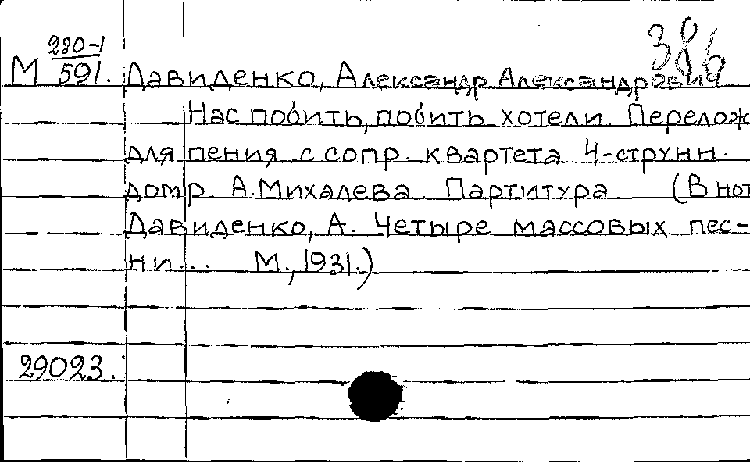 386
М 280-1/591. Давиденко, Александр Александрович
Нас побить, побить хотели. Перелож
для пения с сопр. квартета 4-струнн.
домр А. Михалева. Партитура. (В нот
Давиденко, А. Четыре массовых пес-
ни... М., 1931.)
29023.